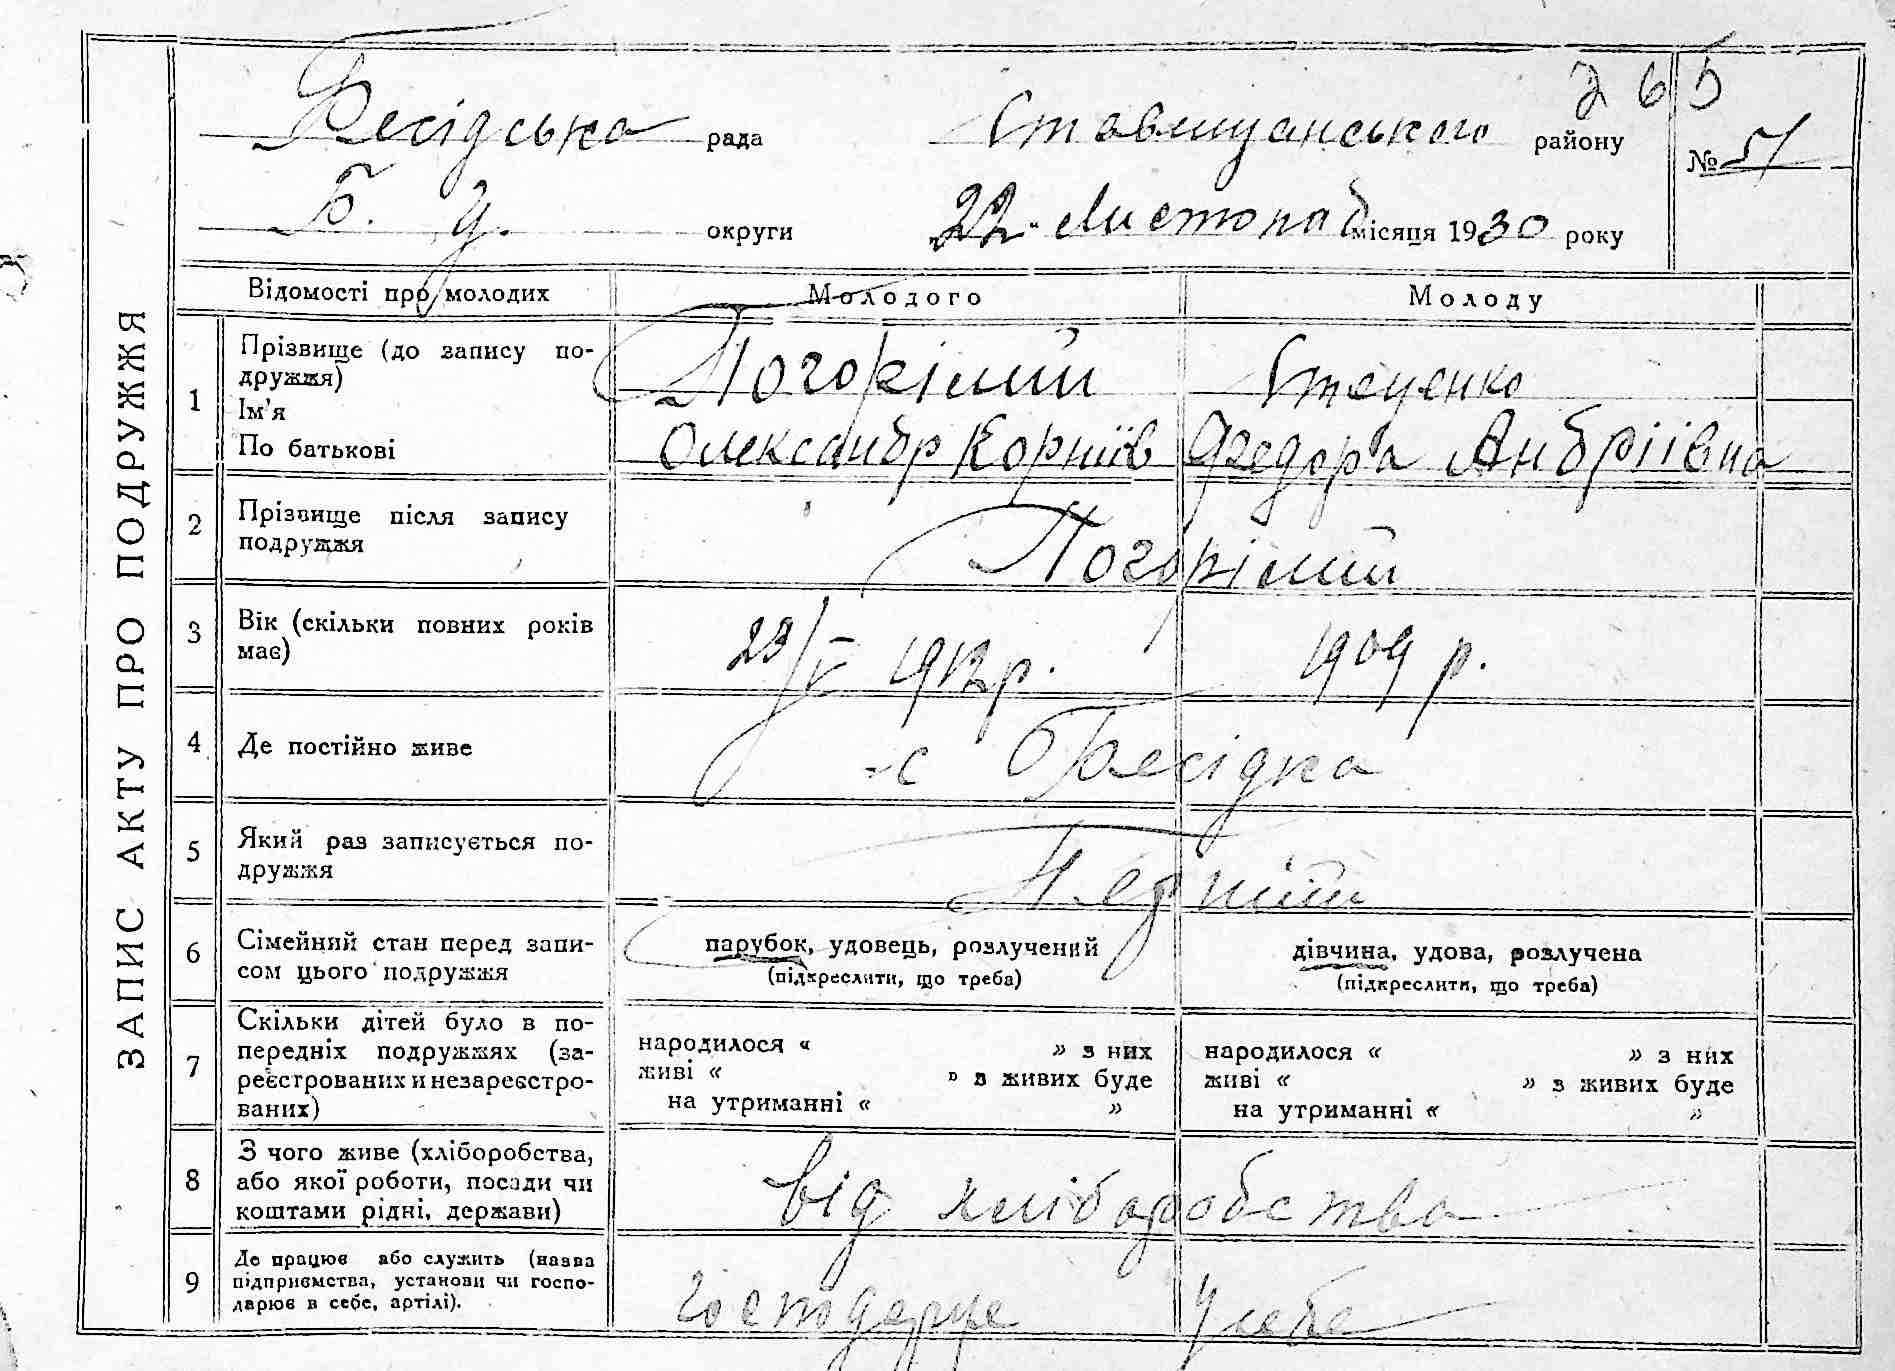 265
Бесідська рада Ставищанського району № 51
Б. Ц. округи 22 Листопад місяця 1930 року
ЗАПИС АКТУ ПРО ПОДРУЖЖЯ
Відомості про молодих Молодого Молоду
1 Прізвище (до запису по-
дружжя) Погорілий Стеценко
Ім'я
По батькові Олександр Корніїв Федора Андріївна
2 Прізвище після запису
подружжя Погорілий
3 Вік (скільки повних років
має) 23/V 1912 р. 1909 р.
4 Де постійно живе с Бесідка
5 Який раз записується по-
дружжя Перший
6 Сімейний стан перед запи-
сом цього подружжя
парубок, удовець, розлучений
(підкреслити, що треба)
дівчина, удова, розлучена
(підкреслити, що треба)
7 Скільки дітей було в по-
передніх подружжях (за-
реєстрованих и незареєстро-
ваних)
народилося « » з них
живі « » з живих буде
на утриманні « »
народилося « » з них
живі « » з живих буде
на утриманні « »
8 З чого живе (хліборобства,
або якої роботи, посади чи
коштами рідні, держави)
від хліборобства
9 Де працює або служить (назва
підприємства, установи чи госпо-
дарює в себе, артілі).
господарує у себе